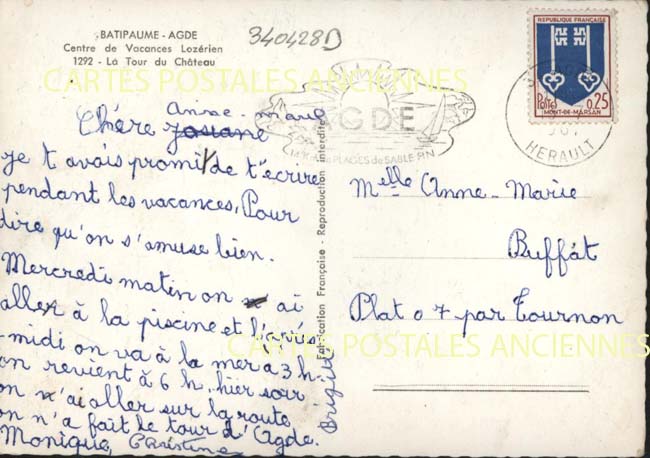 BATIPAUME - AGDE
Centre de Vacances Lozérien
1292 - La Tour du Château
340428D
CARTES POSTALES ANCIENNES
REPUBLIQUE FRANÇAISE
Postes 0,25
MONT-DE-MARSAN
AGDE
PLAGES de SABLE FIN
HERAULT
Anne-marie
Chère Josiane
je t avais promis de t'écrire
pendant les vacances, Pour
dire qu'on s'amuse bien.
Mercredi matin on ai
aller à la piscine et l'après
-midi on va à la mer a 3 h.
on revient à 6 h. hier soir
on n'ai aller sur la route
on n'a fait le tour d'Agde.
Monique, Christine
Brigitte
Fabrication Française - Reproduction Interdite
Melle Anne-Marie
Buffat
Plat 07 par Tournon
CARTES POSTALES ANCIENNES